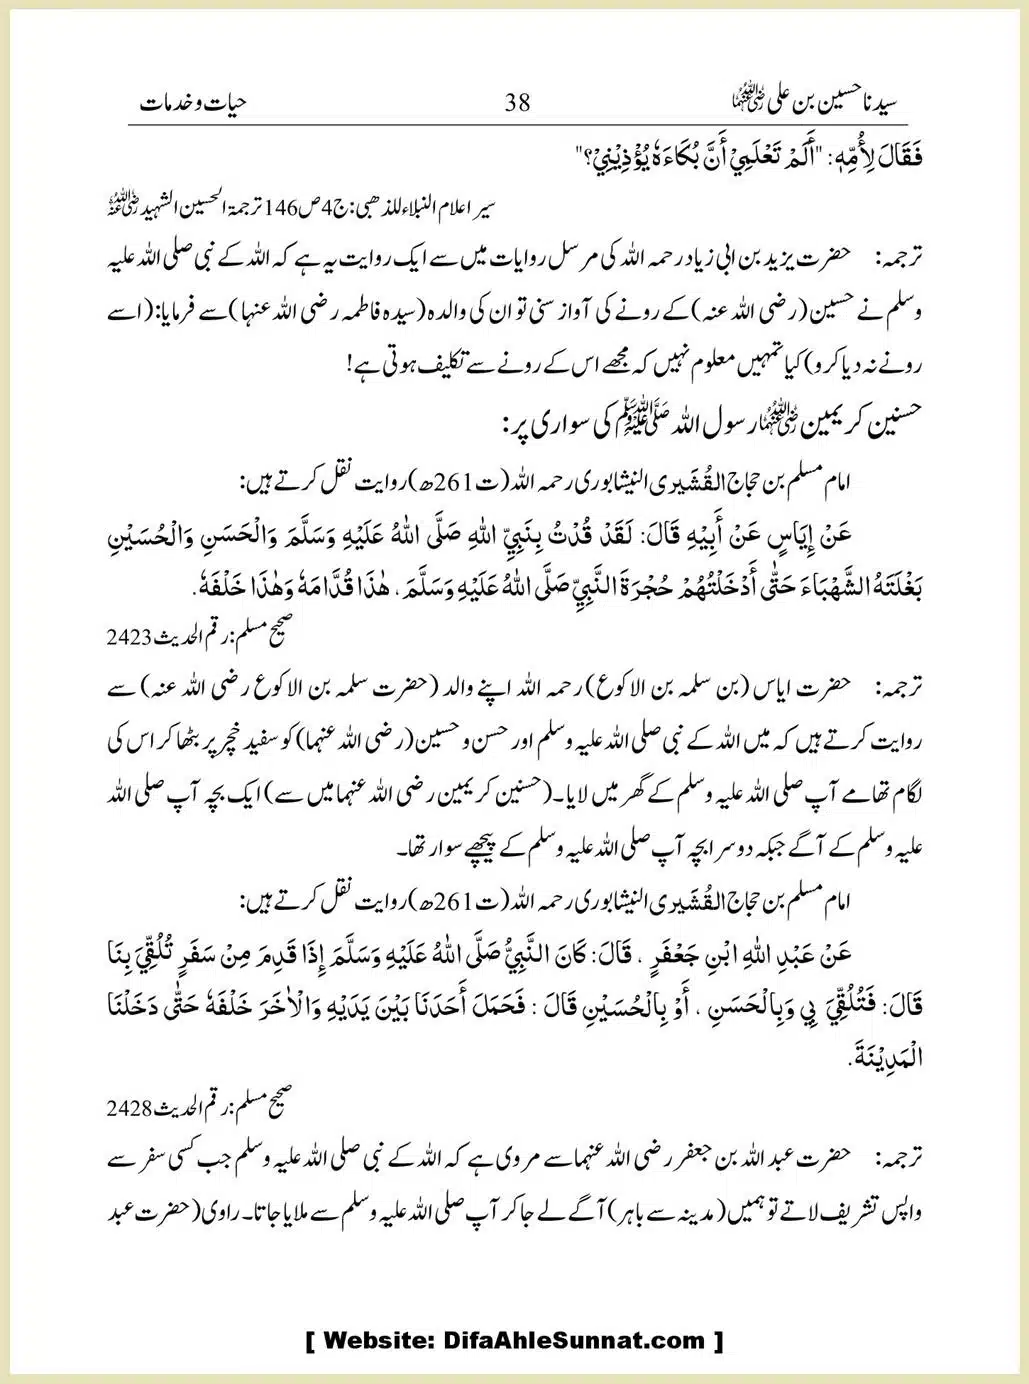 سیدنا حسین بن علی رضی اللہ عنہما 38 حیات و خدمات
فَقَالَ لِأُمِّهٖ: "أَلَمْ تَعْلَمِيْ أَنَّ بُكَاءَهٗ يُؤْذِيْنِيْ؟"
سیر اعلام النبلاء للذھبی: ج4 ص146 ترجمۃ الحسین الشہید رضی اللہ عنہ
ترجمہ: حضرت یزید بن ابی زیاد رحمہ اللہ کی مرسل روایات میں سے ایک روایت یہ ہے کہ اللہ کے نبی صلی اللہ علیہ
وسلم نے حسین (رضی اللہ عنہ) کے رونے کی آواز سنی تو ان کی والدہ (سیدہ فاطمہ رضی اللہ عنہا) سے فرمایا: (اسے
رونے نہ دیا کرو) کیا تمہیں معلوم نہیں کہ مجھے اس کے رونے سے تکلیف ہوتی ہے!
حسنین کریمین رضی اللہ عنہما رسول اللہ صلی اللہ علیہ وسلم کی سواری پر:
امام مسلم بن حجاج القُشَیری النیشاپوری رحمہ اللہ (ت261ھ) روایت نقل کرتے ہیں:
عَنْ إِيَاسٍ عَنْ أَبِيْهِ قَالَ: لَقَدْ قُدْتُ بِنَبِيِّ اللهِ صَلَّى اللهُ عَلَيْهِ وَسَلَّمَ وَالْحَسَنِ وَالْحُسَيْنِ
بَغْلَتَهُ الشَّهْبَاءَ حَتّٰى أَدْخَلْتُهُمْ حُجْرَةَ النَّبِيِّ صَلَّى اللهُ عَلَيْهِ وَسَلَّمَ، هٰذَا قُدَّامَهٗ وَهٰذَا خَلْفَهٗ.
صحیح مسلم: رقم الحدیث 2423
ترجمہ: حضرت ایاس (بن سلمہ بن الاکوع) رحمہ اللہ اپنے والد (حضرت سلمہ بن الاکوع رضی اللہ عنہ) سے
روایت کرتے ہیں کہ میں اللہ کے نبی صلی اللہ علیہ وسلم اور حسن و حسین (رضی اللہ عنہما) کو سفید خچر پر بٹھا کر اس کی
لگام تھامے آپ صلی اللہ علیہ وسلم کے گھر میں لایا۔ (حسنین کریمین رضی اللہ عنہما میں سے) ایک بچہ آپ صلی اللہ
علیہ وسلم کے آگے جبکہ دوسرا بچہ آپ صلی اللہ علیہ وسلم کے پیچھے سوار تھا۔
امام مسلم بن حجاج القُشَیری النیشاپوری رحمہ اللہ (ت261ھ) روایت نقل کرتے ہیں:
عَنْ عَبْدِ اللهِ ابْنِ جَعْفَرٍ ، قَالَ: كَانَ النَّبِيُّ صَلَّى اللهُ عَلَيْهِ وَسَلَّمَ إِذَا قَدِمَ مِنْ سَفَرٍ تُلُقِّيَ بِنَا
قَالَ: فَتُلُقِّيَ بِي وَبِالْحَسَنِ ، أَوْ بِالْحُسَيْنِ قَالَ : فَحَمَلَ أَحَدَنَا بَيْنَ يَدَيْهِ وَالْاٰخَرَ خَلْفَهٗ حَتّٰى دَخَلْنَا
الْمَدِيْنَةَ.
صحیح مسلم: رقم الحدیث 2428
ترجمہ: حضرت عبد اللہ بن جعفر رضی اللہ عنہما سے مروی ہے کہ اللہ کے نبی صلی اللہ علیہ وسلم جب کسی سفر سے
واپس تشریف لاتے تو ہمیں (مدینہ سے باہر) آگے لے جا کر آپ صلی اللہ علیہ وسلم سے ملایا جاتا۔ راوی (حضرت عبد
[ Website: DifaAhleSunnat.com ]